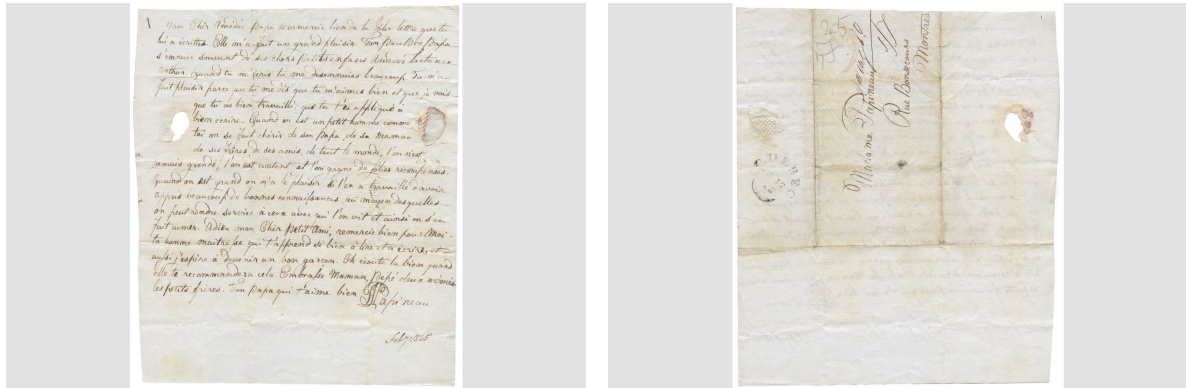 Mon Cher Amédée Papa te remercie bien de la jolie lettre que tu
lui a écrites. Elle m'a fait un grand plaisir. Ton Pauvre Papa
s'ennuie souvent de ses chers petits enfans Amédée Lactance
Arthur. Quand tu m'écris tu me désennuies beaucoup. Tu m'as
fait plaisir parce que tu me dis que tu m'aimes bien et que je vois
que tu as bien travaillé, que tu t'es appliqué à
bien écrire. Quand on est un petit homme comme
toi on se fait chérir de son Papa de sa Maman
de ses frères de ses amis, de tout le monde, l'on n'est
jamais grondé, l'on est content et l'on gagne de jolies recompenses.
Quand on est grand on a le plaisir si l'on a travaillé d'avoir
appris beaucoup de bonnes connaissances au moyen desquelles
on peut rendre service à ceux avec qui l'on vit et ainsi on s'en
fait aimer. Adieu mon Cher petit Ami, remercie bien pour Moi
ta bonne maitresse qui t'apprend si bien à lire et à écrire, et
aussi j'espère à devenir un bon garçon. Oh écoute la bien quand
elle te recommandera cela. Embrasse Maman, Pepé deux mémés
les petits frères. Ton Papa qui t'aime bien
Papineau
Feby 1825
Madame Papineau
Rue Bonsecours
Montréal
QUEBEC